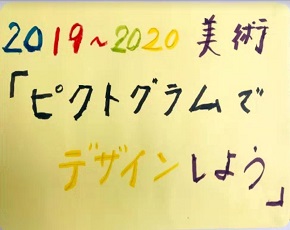 2019~2020 美術
「ピクトグラムで
デザインしよう」